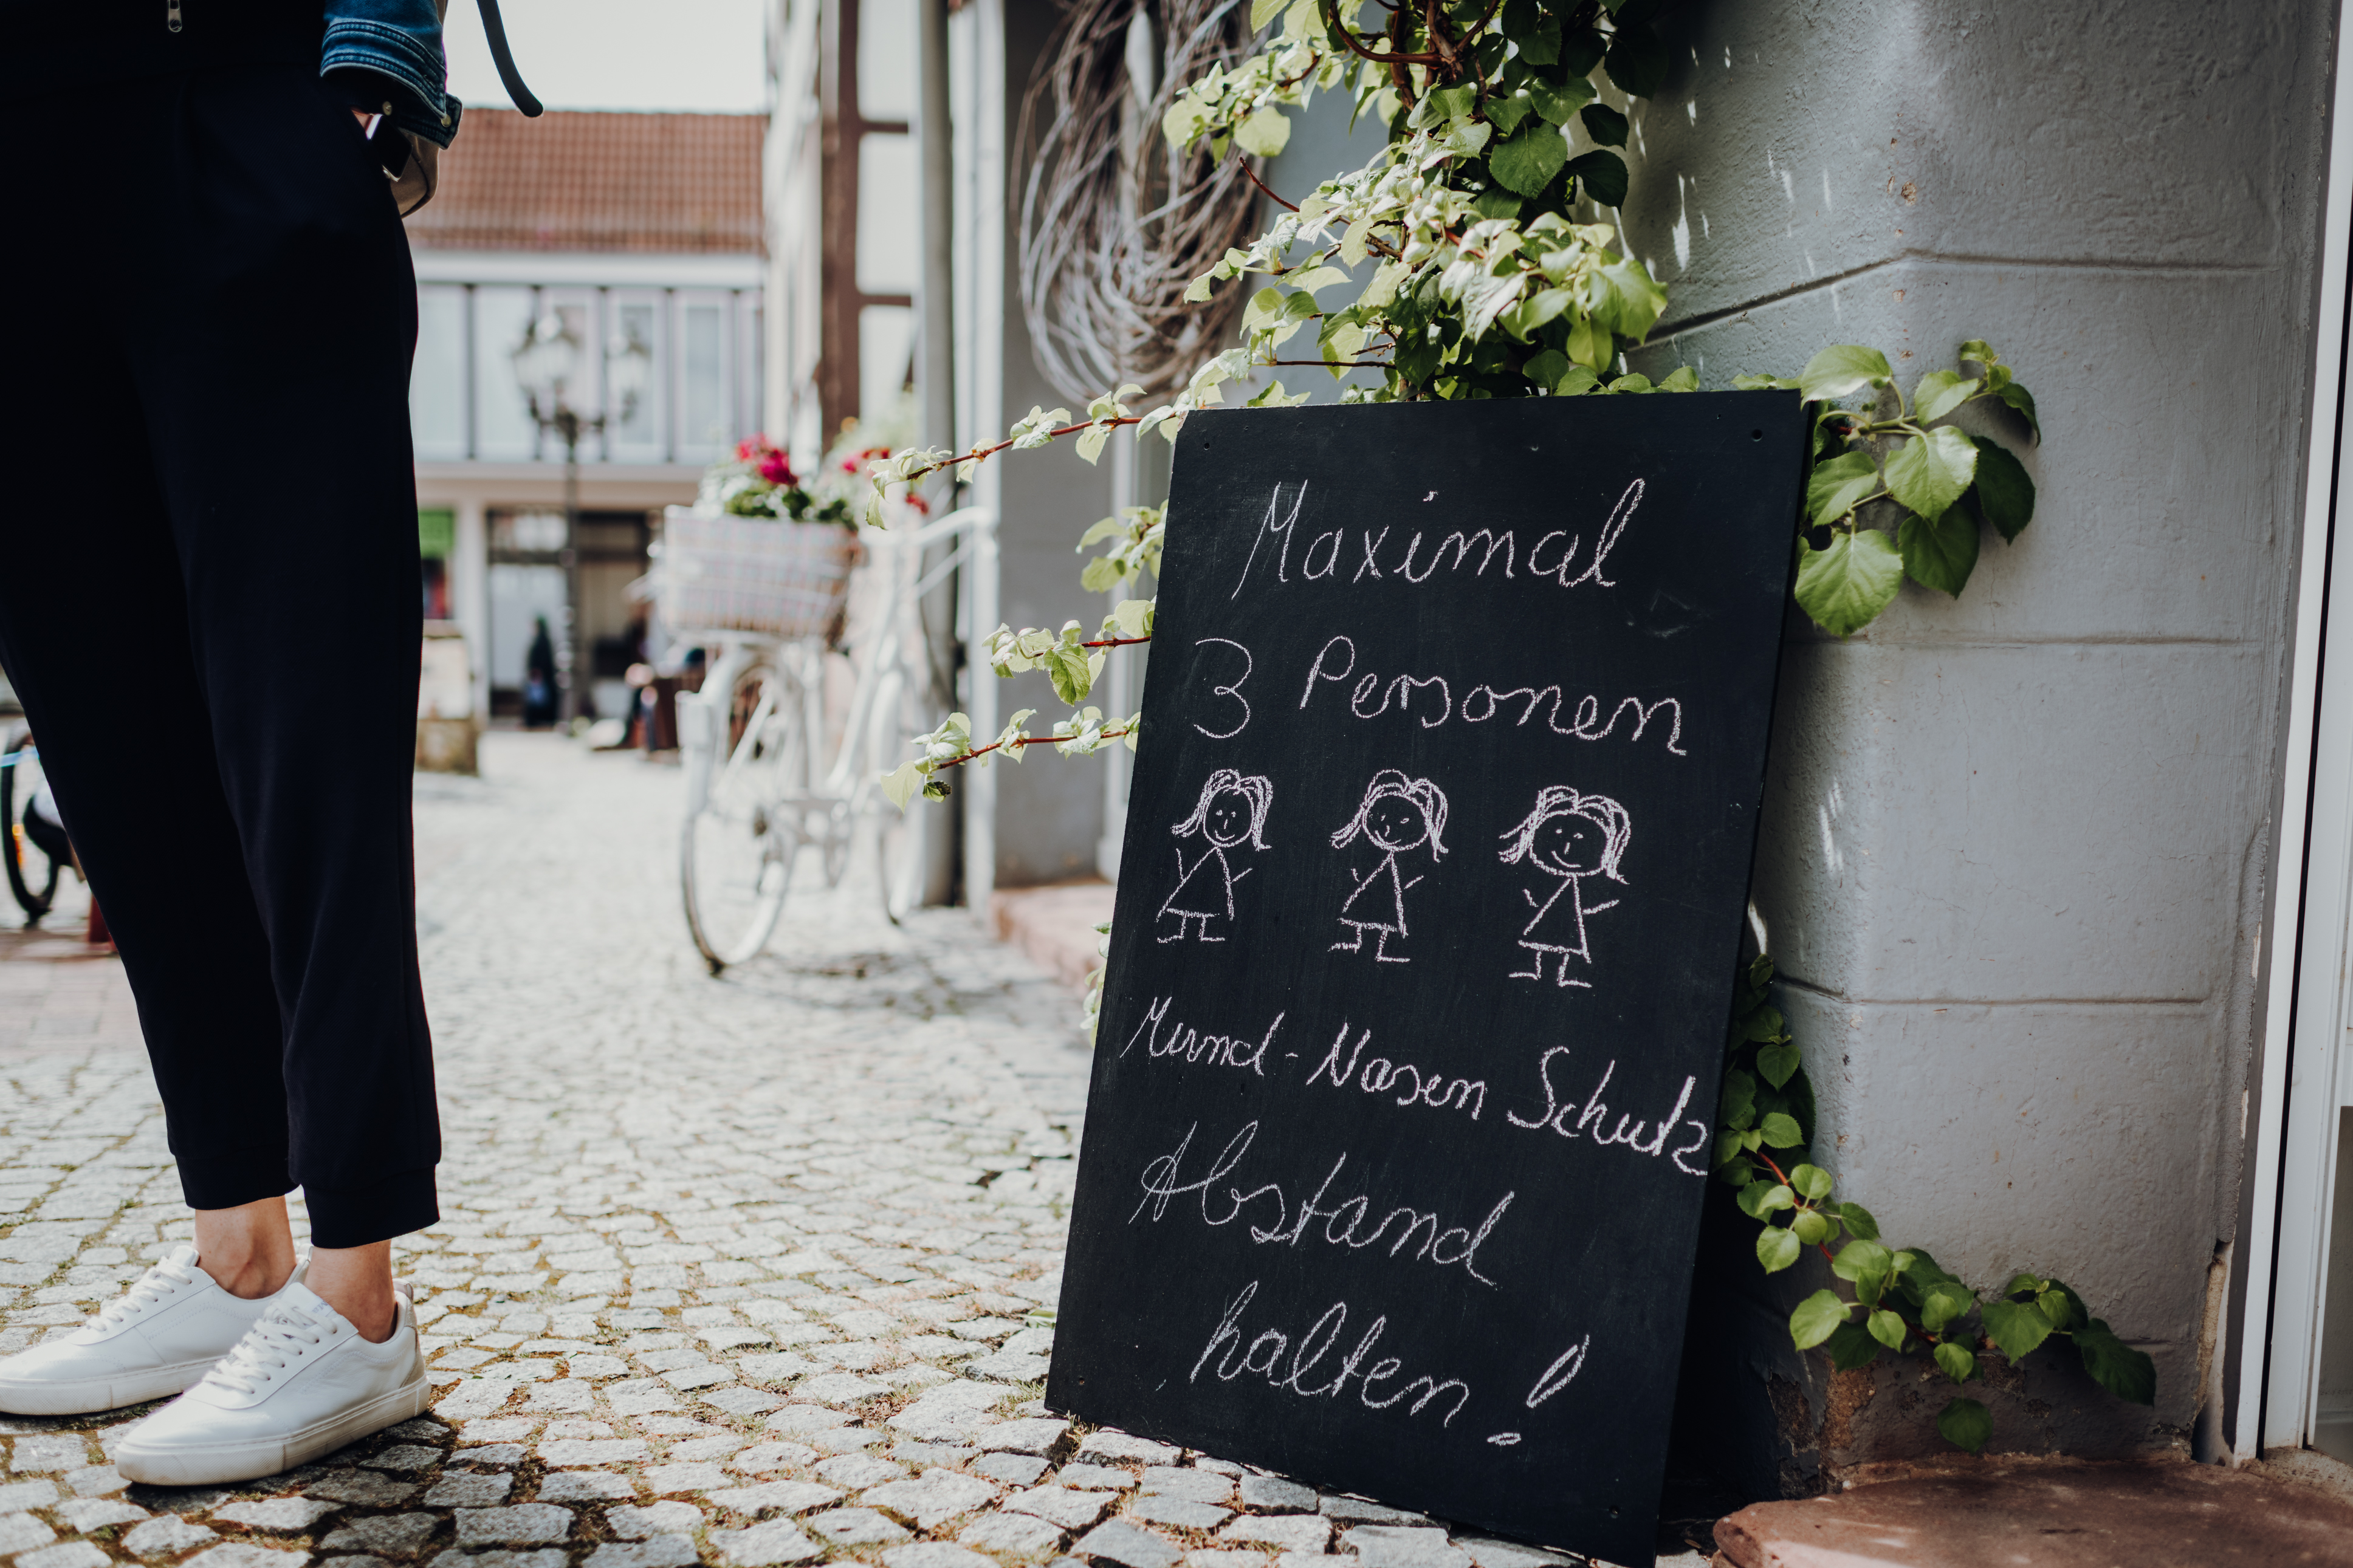 Maximal
3 Personen
Mund-Nasen Schutz
Abstand
halten!